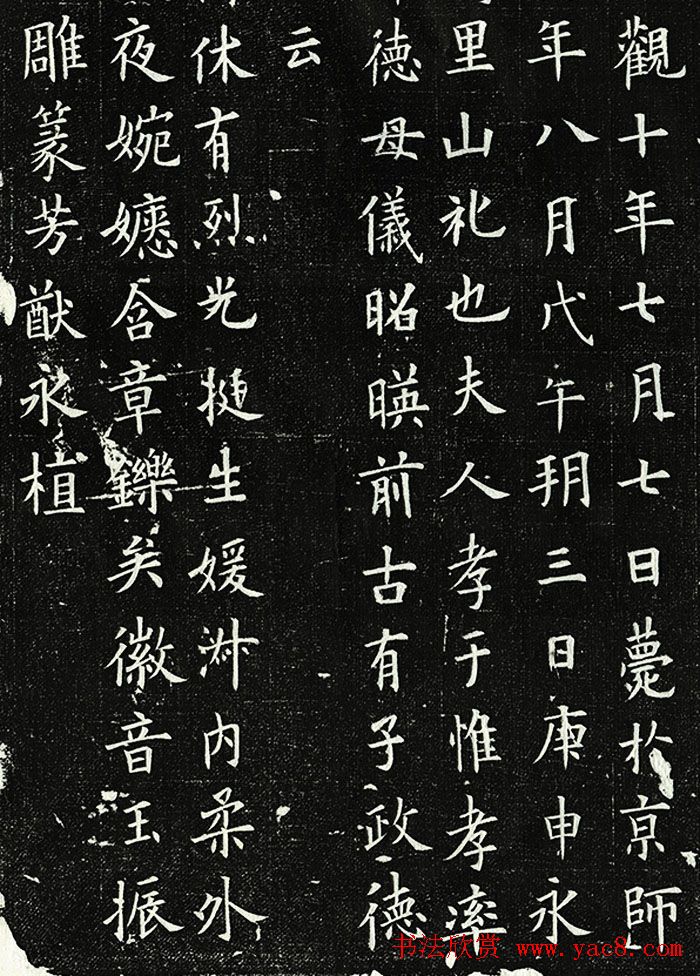 觀十年七月七日薨於京師
年八月戊午朔三日庚申永
里山礼也夫人孝于惟孝率
德母儀昭暎前古有子政德
云
休有烈光挺生媛淋内柔外
夜婉嬺含章鑠矣徽音玉振
雕篆芳猷永植
书法欣赏 www.yac8.com